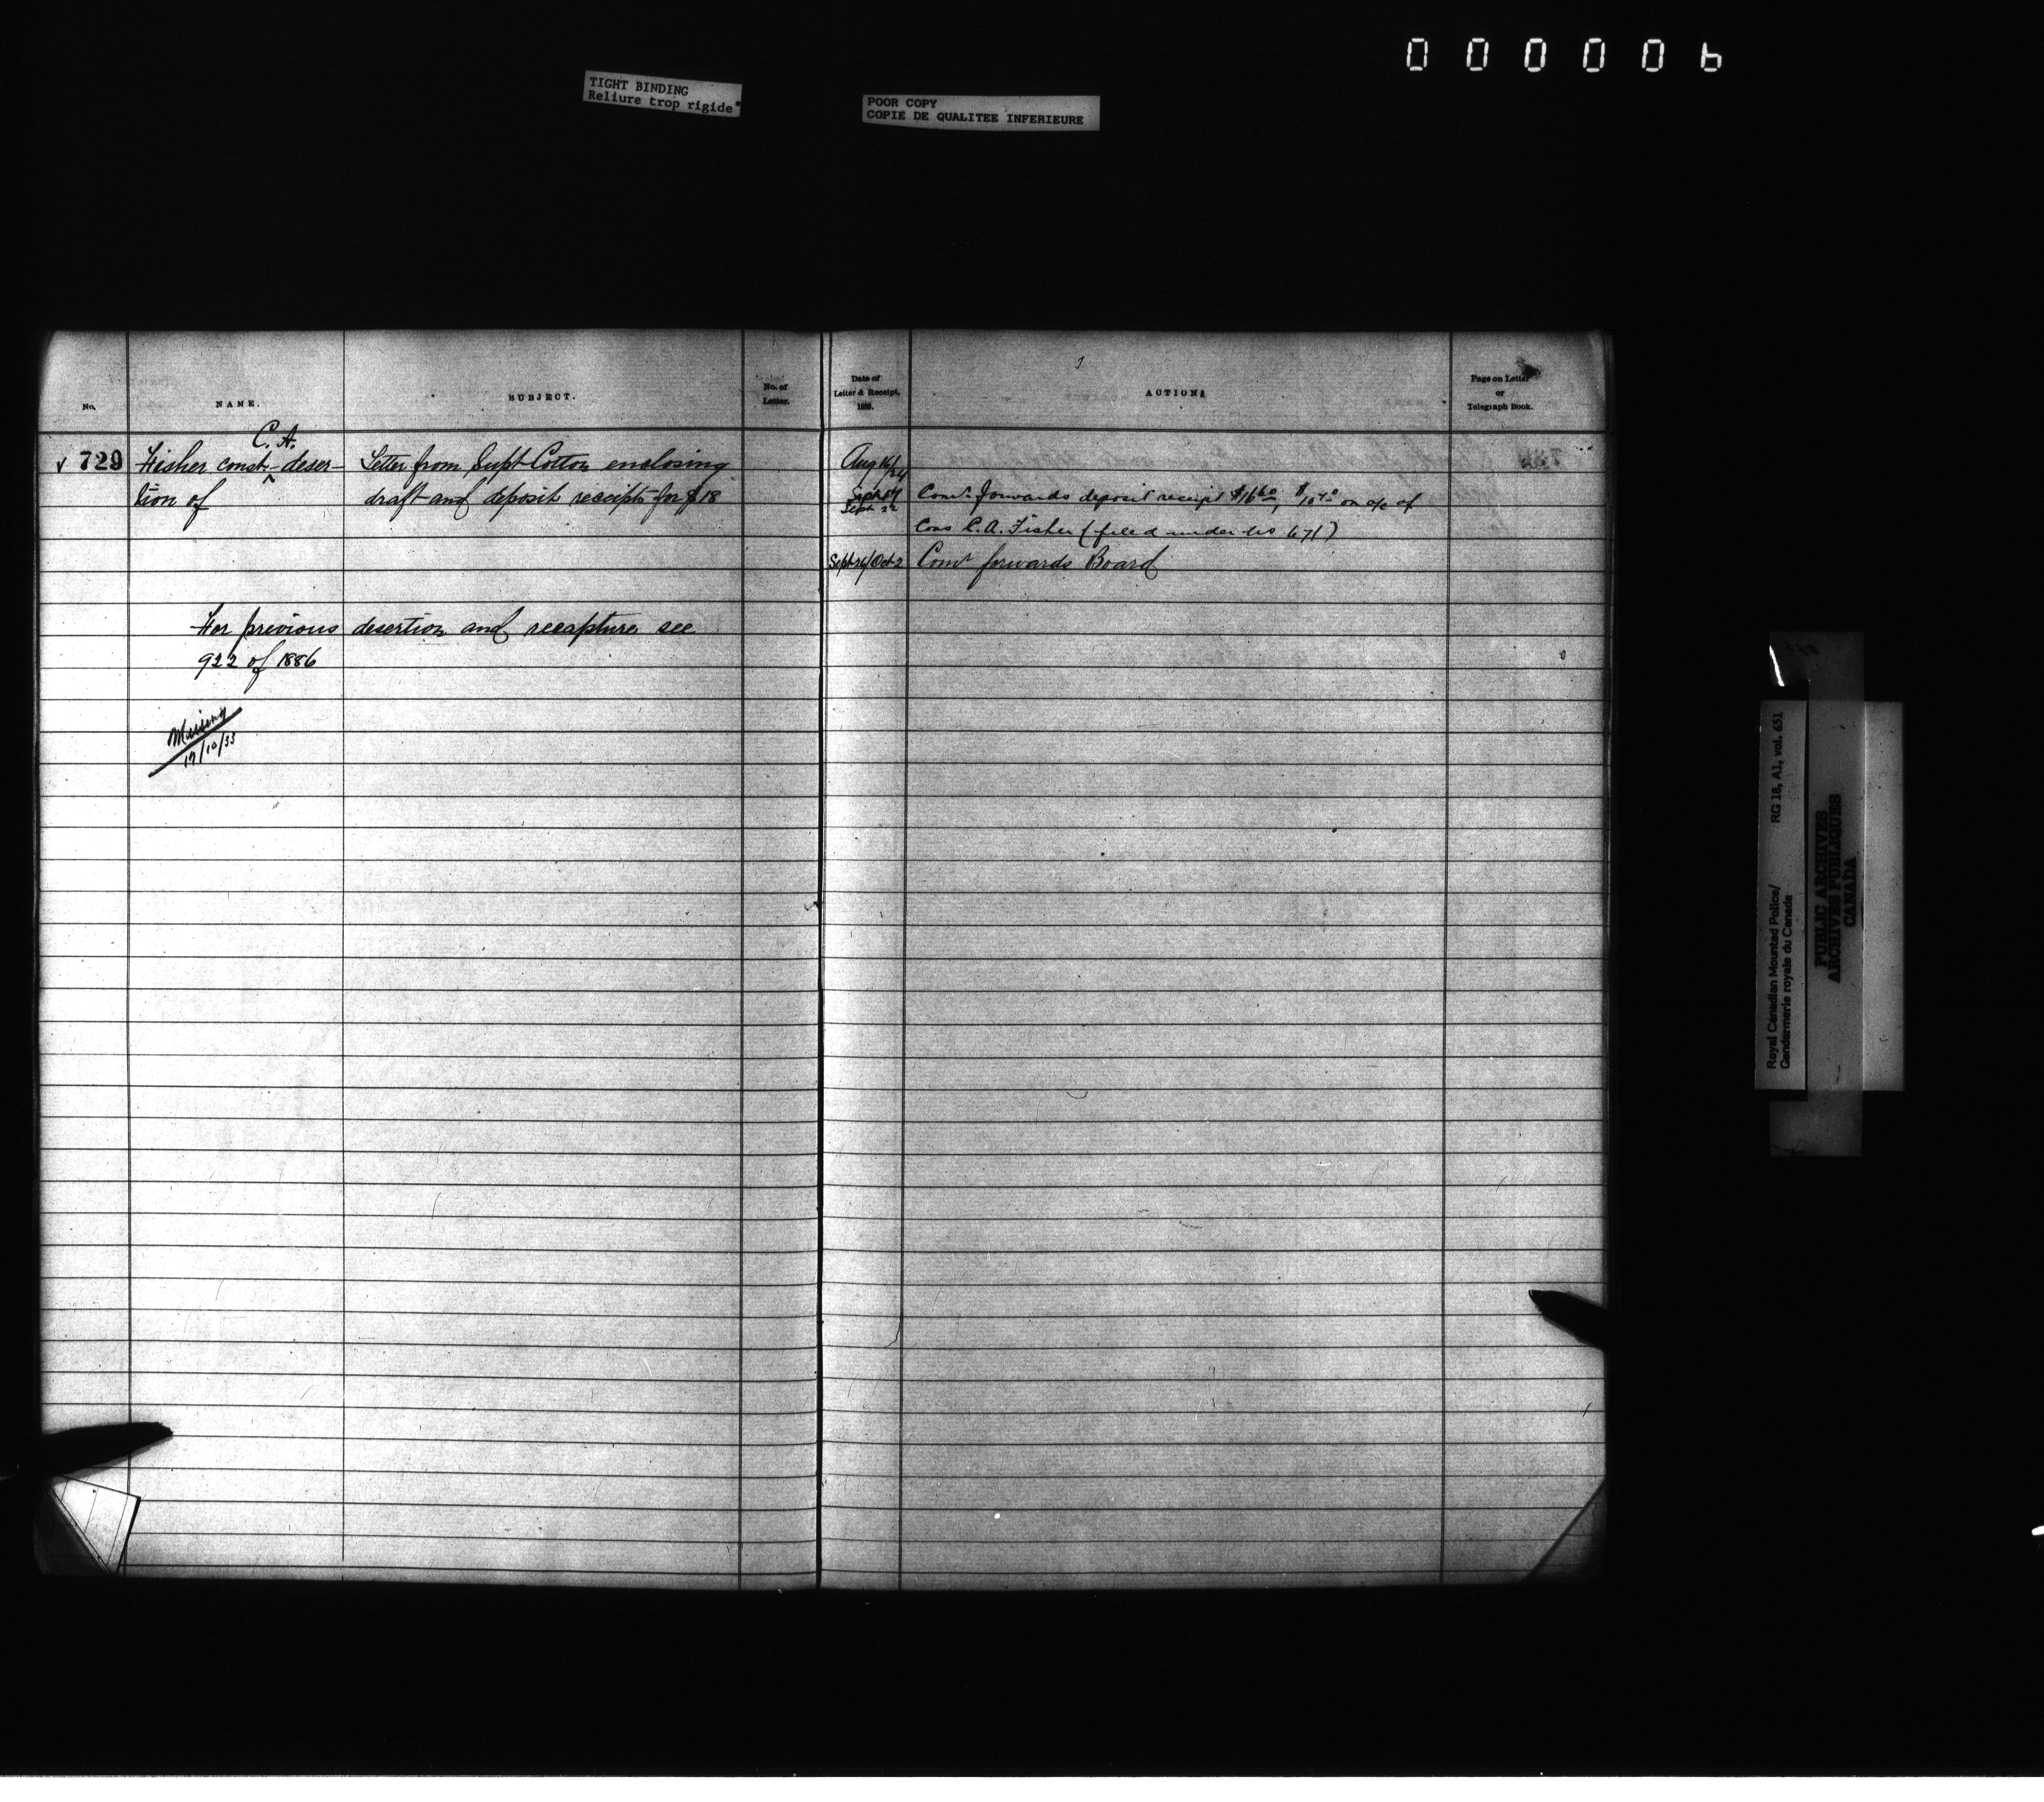 000006
TIGHT BINDING
Reliure trop rigide
POOR COPY
COPIE DE QUALITEE INFERIEURE
No.
NAME.
SUBJECT.
No. of
Letter.
Date of
Letter & Receipt,
188 .
ACTION
Page on Letter
or
Telegraph Book.
√ 729
C. A.
Fisher const ^ deser-
tion of
Letter from Supt Cotton enclosing
draft and deposit receipts for $18
Aug 16/24
Sept 17
Sept 22
Comr forwards deposit receipt $16.60, on a/c of
Cons C.A. Fisher (filed under No 671)
Sept 26/Oct 2 Comr forwards Board
For previous desertion and recapture see
922 of 1886
Missing
17/10/33
Royal Canadian Mounted Police/
Gendarmerie royale du Canada
RG 18, A1, vol. 651
PUBLIC ARCHIVES
ARCHIVES PUBLIQUES
CANADA